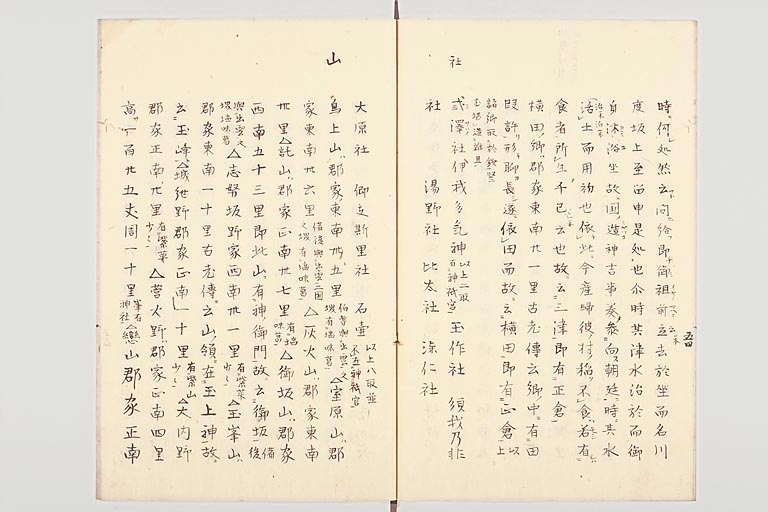 時何処然云問給即御祖前立去於坐而石川
度坂上至留申是処也尒時其津水治於而御
身沐浴坐故国造神吉事奏参向朝廷時其水
活出而用初也依此今産婦彼村稲不食若有
食者所生子已云也故云三津即有正倉
横田郷郡家東南廿一里古老伝云郷中有田
四許形聊長遂依田而故云横田即有正倉以上
諸郷所出鉄堅
尤堪造雑具
社
弎澤社伊我多気神以上二所有神祇官玉作社須我乃非
社 湯野社 比太社 漆仁社
大原社 仰支斯里社 石壷以上八所並不在神祇官
山
鳥上山郡家東南卅五里伯耆与出雲之堺有塩味葛△室原山郡
家東南卅六里備後与出雲二国之堺有塩味葛△灰火山郡家東南
卅里△託山郡家正南卅七里有塩味葛△御坂山郡家
西南五十三里即此山有神御門故云御坂備後
与出雲之堺有塩味葛△志努坂野家西南卅一里有紫草少々△玉峯山
郡家東南一十里古老伝云山嶺在玉上神故
云玉峰△城紲野郡家正南一十里有紫草少々△大内野
郡家正南廿里有紫草少々△菅火野郡家正南四里
高一百廿五丈周一十里峯有神社△戀山郡家正南